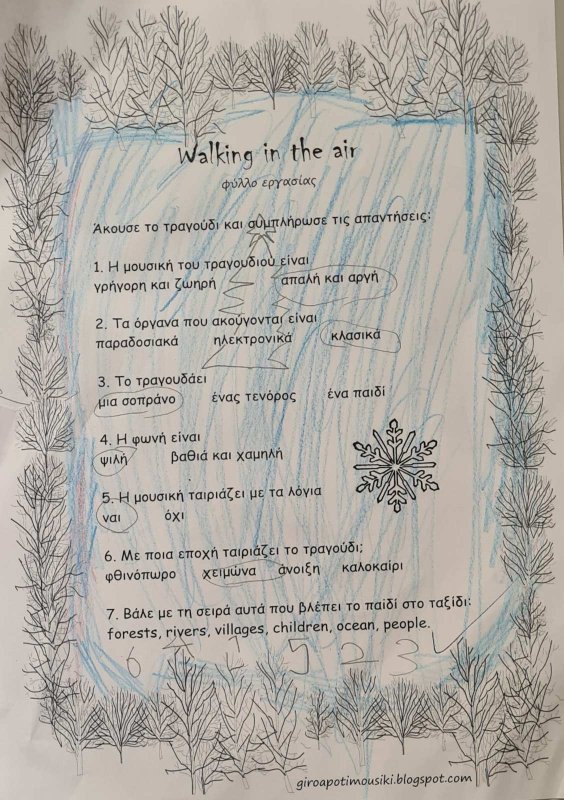 Walking in the air
φύλλο εργασίας
Άκουσε το τραγούδι και συμπλήρωσε τις απαντήσεις:
1. Η μουσική του τραγουδιού είναι
γρήγορη και ζωηρή απαλή και αργή
2. Τα όργανα που ακούγονται είναι
παραδοσιακά ηλεκτρονικά κλασικά
3. Το τραγουδάει
μια σοπράνο ένας τενόρος ένα παιδί
4. Η φωνή είναι
ψιλή βαθιά και χαμηλή
5. Η μουσική ταιριάζει με τα λόγια
ναι όχι
6. Με ποια εποχή ταιριάζει το τραγούδι;
φθινόπωρο χειμώνα άνοιξη καλοκαίρι
7. Βάλε με τη σειρά αυτά που βλέπει το παιδί στο ταξίδι:
forests, rivers, villages, children, ocean, people.
6 1 5 2 3
giroapotimousiki.blogspot.com